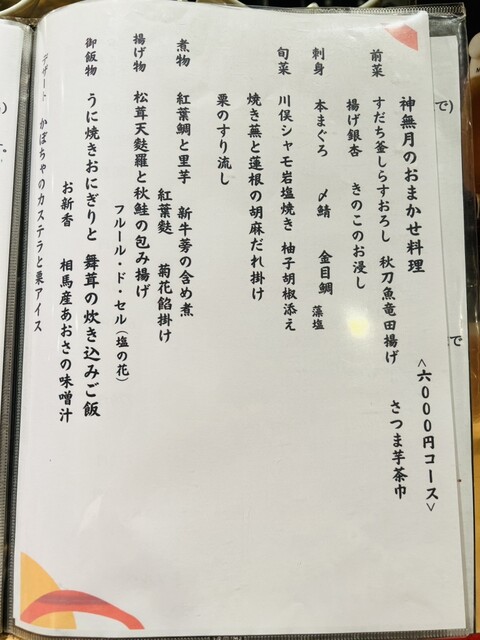 神無月のおまかせ料理
<六000円コース>
前菜 すだち釜しらすおろし 秋刀魚竜田揚げ さつま芋茶巾
揚げ銀杏 きのこのお浸し
刺身 本まぐろ 〆鯖 金目鯛 藻塩
旬菜 川俣シャモ岩塩焼き 柚子胡椒添え
焼き蕪と蓮根の胡麻だれ掛け
栗のすり流し
煮物 紅葉鯛と里芋 新牛蒡の含め煮
紅葉麩 菊花餡掛け
揚げ物 松茸天麩羅と秋鮭の包み揚げ
フルール・ド・セル(塩の花)
御飯物 うに焼きおにぎりと 舞茸の炊き込みご飯
お新香 相馬産あおさの味噌汁
デザート かぼちゃのカステラと栗アイス
で)
で